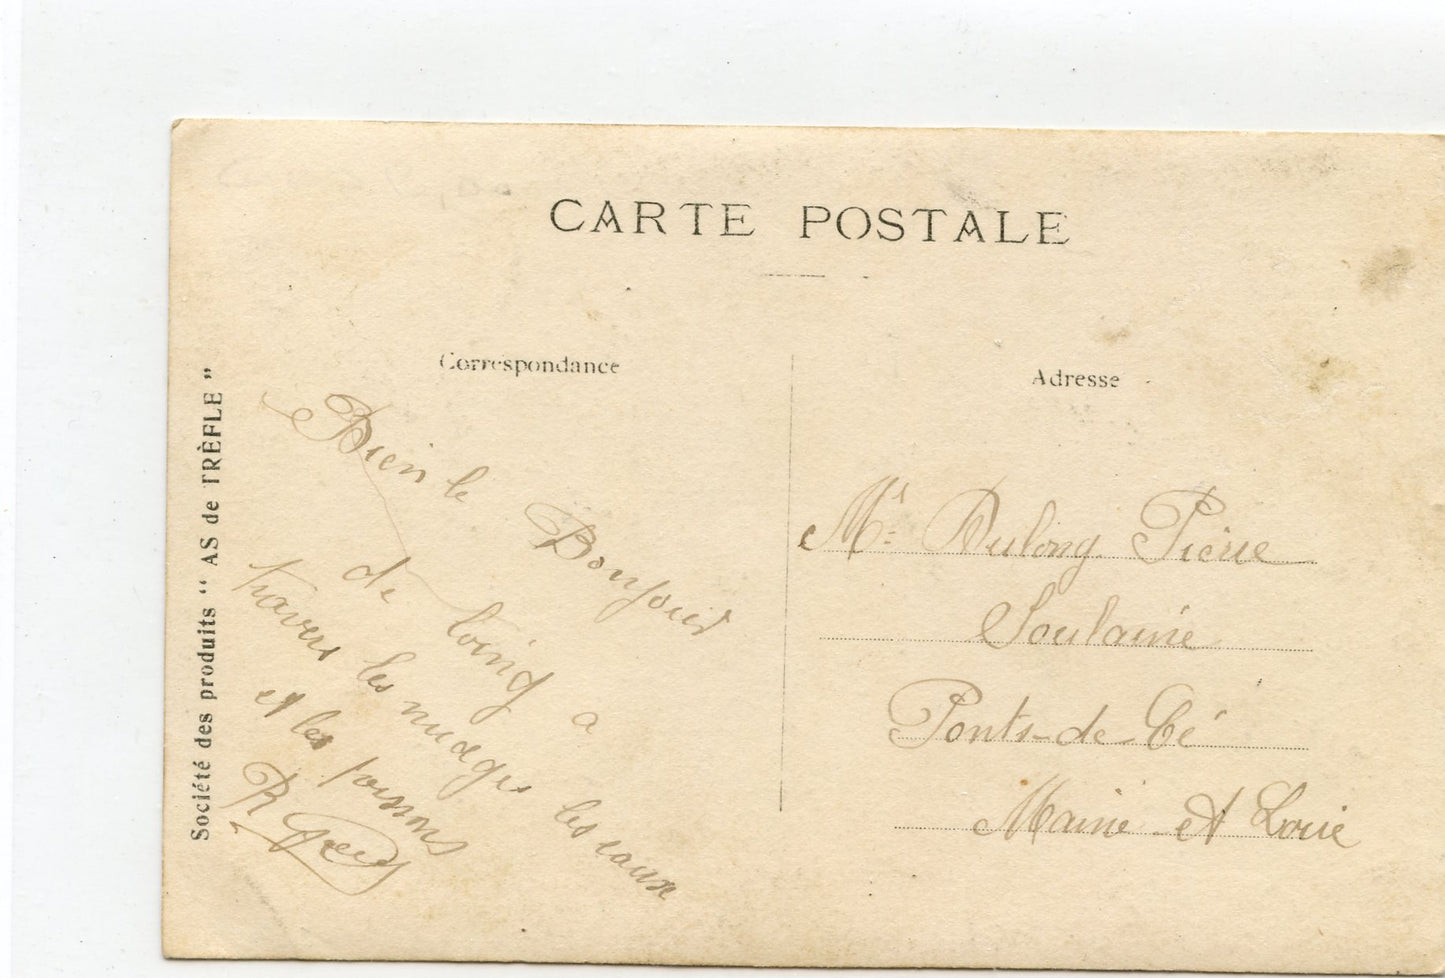 CARTE POSTALE
Correspondance
Adresse
Société des produits " AS de TRÈFLE "
Bien le Bonjour
de loing a
travers les nuages les eaux
et les poissons
R
Mr Dulong Pierre
Soulaine
Ponts-de-Cé
Maine et Loire